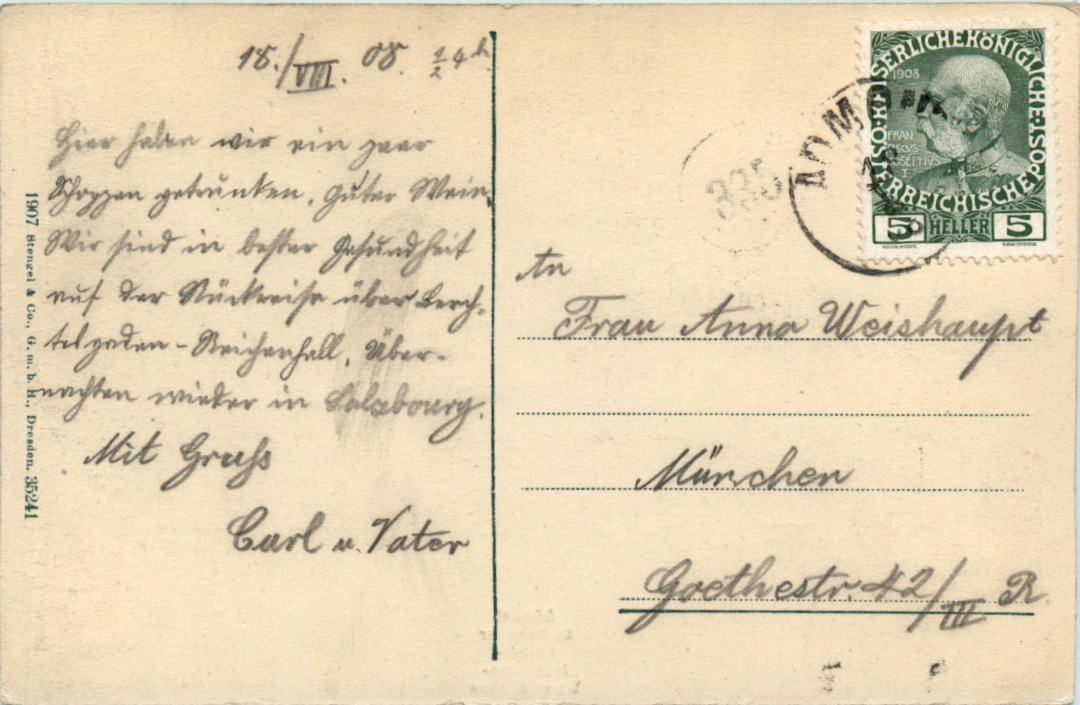 18./VIII. 08. ½4h
Hier haben wir ein paar
Schoppen getrunken. Guter Wein.
Wir sind in bester Gesundheit
auf der Rückreise über Berch-
tesgaden - Reichenhall. Über-
nachten wieder in Salzbourg.
Mit Gruß
Carl u. Vater
1907 Stengel & Co., G. m. b. H., Dresden. 35241
KAISERLICHE KÖNIGLICHE ÖSTERREICHISCHE POST
1908
FRAN
CISCVS
IOSEPHVS
I
5 HELLER 5
ADMONT
335
An
Frau Anna Weishaupt
München
Goethestr. 42/III R.